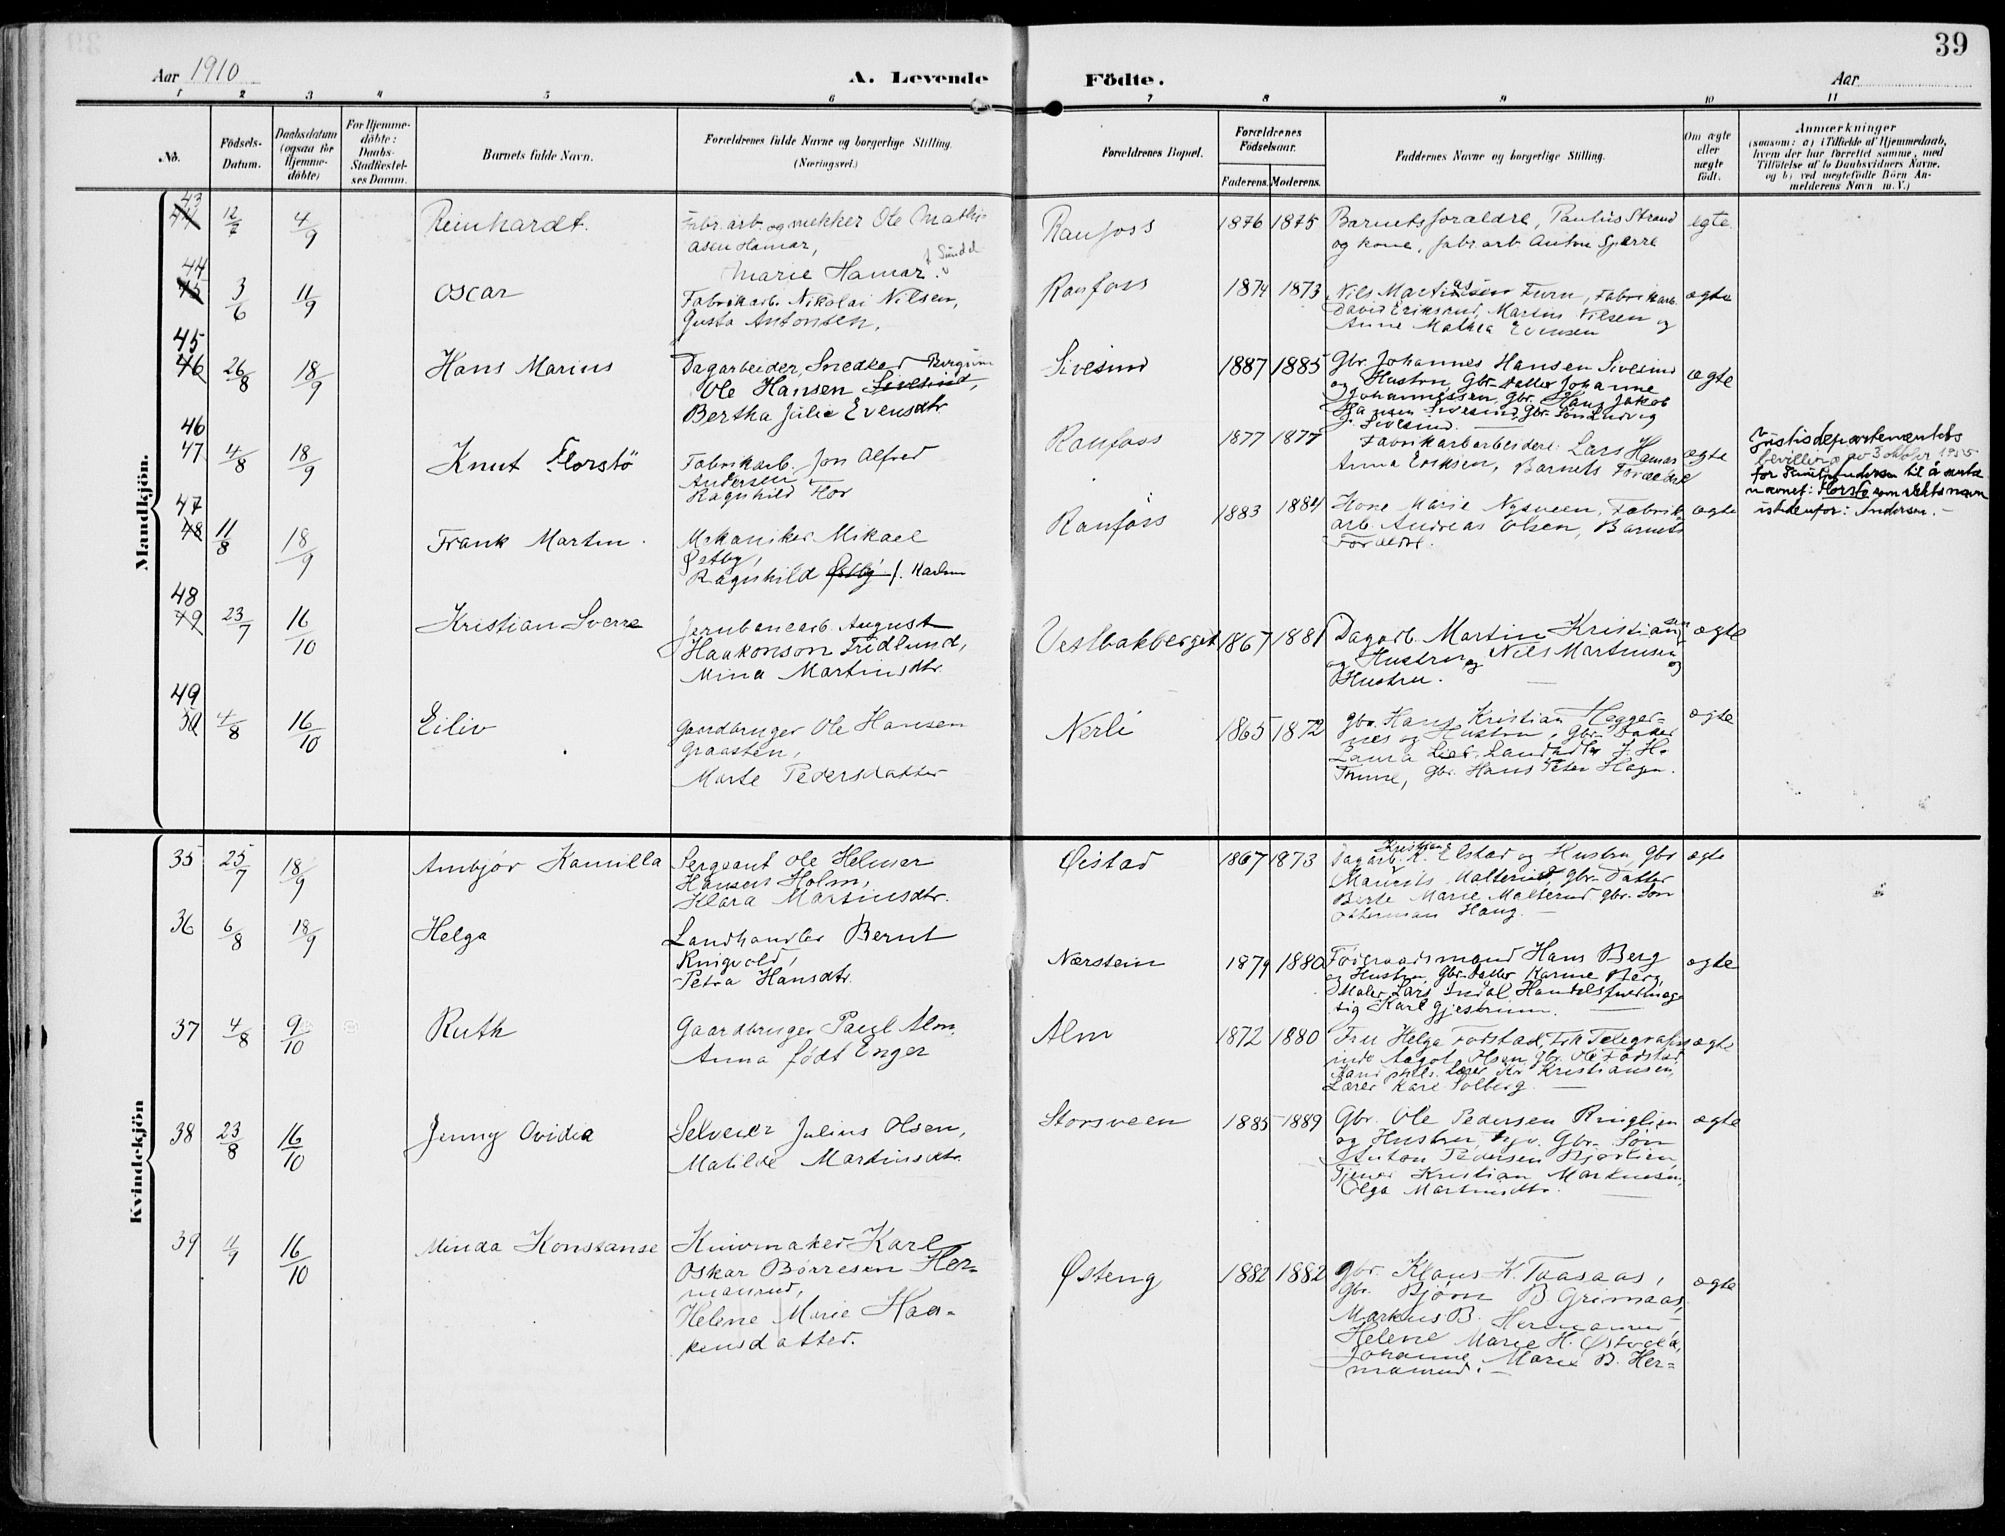 39
Aar 1910
A. Levende
Födte.
Aar
1 2 3 4 5 6 7 8 9 10 11
No.
Födsels-Datum.
Daabsdatum (ogsaa for Hjemme-döbte)
For Hjemme-döbte: Daabs-Stadfæstel-ses Datum.
Barnets fulde Navn.
Forældrenes fulde Navne og borgerlige Stilling. (Næringsvei.)
Forældrenes Bopæl.
Forældrenes Födselsaar.
Faderens. Moderens.
Faddernes Navne og borgerlige Stilling.
Om ægte eller uægte födt.
Anmærkninger
(saasom: a) i Tilfælde af Hjemmedaab, hvem der har forrettet samme, med Tilföielse af to Daabsvidners Navne. og b) ved uegtefödte Börn An-melderens Navn m. V.)
Mandkjön.
43
44
12/7
4/9
Reinhardt.
Fabr. arb. og snekker Ole Mathi-
asen Hamar,
Marie Hamar f. Sund
Raufoss
1876 1875
Barnets foraeldre, Paulus Strand
og kone, fabr arb Anton Sperre
egte
44
45
3/6
11/9
Oscar
Fabrikarb. Nikolai Nilsen,
Gusta Antonsen.
Raufoss
1874 1873
Nils Martinsen Furu, Fabrikarb.
David Eriksrud, Martin Nilsen og
Anne Mathea Evensen
ægte
45
46
26/8
18/9
Hans Marius
Dagarbeider, Snedker
Ole Hansen Sivesind,
Bertha Julie Evensdtr
Sivesind
1887 1885
Gbr. Johannes Hansen Sivesind
og Hustru, Gbr. Datter Johanne
Johannessen, Gbr. Hans Jakob
Hansen Sivesind, Gbr. Søn Ludvig
J. Sivesind.
ægte
46
47
4/8
18/9
Knut Florstø
Fabrikarb. Jon Alfred
Andersen
Ragnhild Flor
Raufoss
1877 1877
Fabrikarbarbeidere: Lars Hamar
Anna Eriksen, Barnets Forældre
ægte
Justisdepartementets
bevilling av 3 oktober 1955
for Knut Andersen til å anta
navnet: Florstø som slektsnavn
istedenfor: Andersen.
47
48
11/8
18/9
Frank Martin.
Mekaniker Mikael
Østby,
Ragnhild Østby f. Karlsen
Raufoss
1883 1884
Kone Marie Nysveen, Fabrik-
arb. Andreas Olsen, Barnets
Forældre.
ægte
48
49
23/7
16/10
Kristian Sverre
Jernbanearb. August
Haakonson Fridlund,
Mina Martinsdtr.
Vestbakberget
1867 1881
Dagarb. Martin Kristiansen
og Hustru og Nils Martinsen og
Hustru.
ægte
49
50
4/8
16/10
Eiliv
Gaardbruger Ole Hansen
Graasten,
Marte Pedersdatter
Nerli
1865 1872
Gbr. Hans Kristian Hegger-
nes og Hustru, Gbr. Datter
Laura Lier, Landhdlr J. H.
Thune, Gbr. Hans Peter Hagen.
ægte
Kvindekjön
35
25/7
18/9
Ambjør Kamilla
Sergeant Ole Helmer
Hansen Holm,
Klara Martinsdtr.
Øistad
1867 1873
Dagarb. K. Elstad og Hustru, Gbr
Maurits Malterud, Gbr. Datter
Berte Marie Malterud Gbr. Søn
Haug.
ægte
36
6/8
18/9
Helga
Landhandler Bernt
Ringvold,
Petra Hansdtr.
Nærstein
1879 1880
Føderaadsmand Hans Berg
og Hustru, Gbr. Datter Karine Berg,
Maler Lars Indal, Handelsfuldmæg-
tig Karl Gjestrum.
ægte
37
4/8
9/10
Ruth
Gaardbruger Paul Alm,
Anna født Enger
Alm
1872 1880
Fru Helga Fodstad, Frk Telegrafist-
inde Aagot Olsen, Gbr. Ole Fodstad,
Kand. phil. Lærer Kr Kristiansen,
Lærer Kare Solberg.
ægte
38
23/8
16/10
Jenny Ovidia
Selveier Julius Olsen,
Matilde Martinsdtr.
Storsveen
1885 1889
Gbr. Ole Pedersen Ringlien
og Hustru, Gbr. Søn
Anton Pedersen Bjørlien,
Tjener Kristian Martinsen,
Olga Martinsdtr.
ægte
39
11/9
16/10
Minda Konstanse
Knivmaker Karl
Oskar Børresen Her-
manrud,
Helene Marie Haa-
kensdatter.
Østeng
1882 1882
Gbr. Klaus K. Taasaas,
Gbr. Bjørn B Grimaas,
Markus B. Hermanrud
Helene Marie H.
Johanne Marie B. Her-
manrud.
ægte